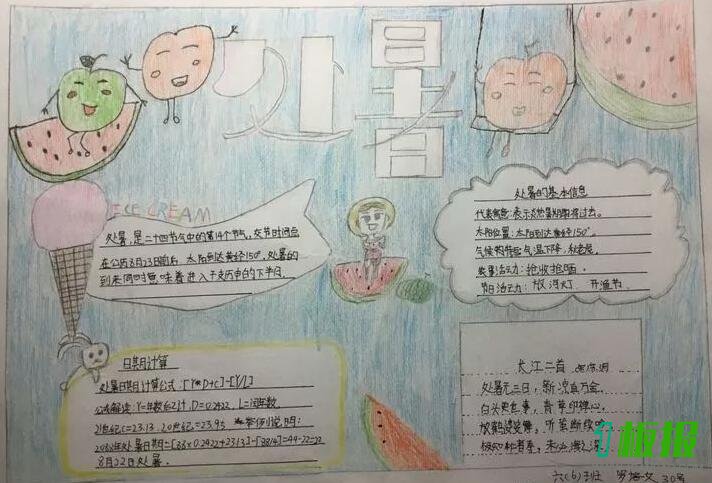 处暑
ICE CREAM
处暑,是二十四节气中的第14个节气,交节时间点
在公历8月23日前后,太阳到达黄经150°。处暑的
到来同时意味着进入干支历申的下半月
处暑的基本信息
代表寓意:表示炎热暑期即将过去。
太阳位置:太阳到达黄经150°。
气候特点:气温下降,秋老虎。
农业活动:抢收抢晒。
节日活动:放河灯、开渔节。
日期计算
处暑日期计算公式:[Y*D+C]-[Y/4]
公式解读:Y=年数后2计,D=0.2422,L=闰年数,
21世纪C=23.13,20世纪C=23.95 举例说明:
2088年处暑日期=[88×0.2422+23.13]-[88/4]=44-22=22
8月22日处暑。
长江二首
处暑无三日,新凉直万金。
白头更世事,青草印禅心。
放鹤婆娑舞,听蛩断续
极知
六(6)班 罗 文 30号
板报